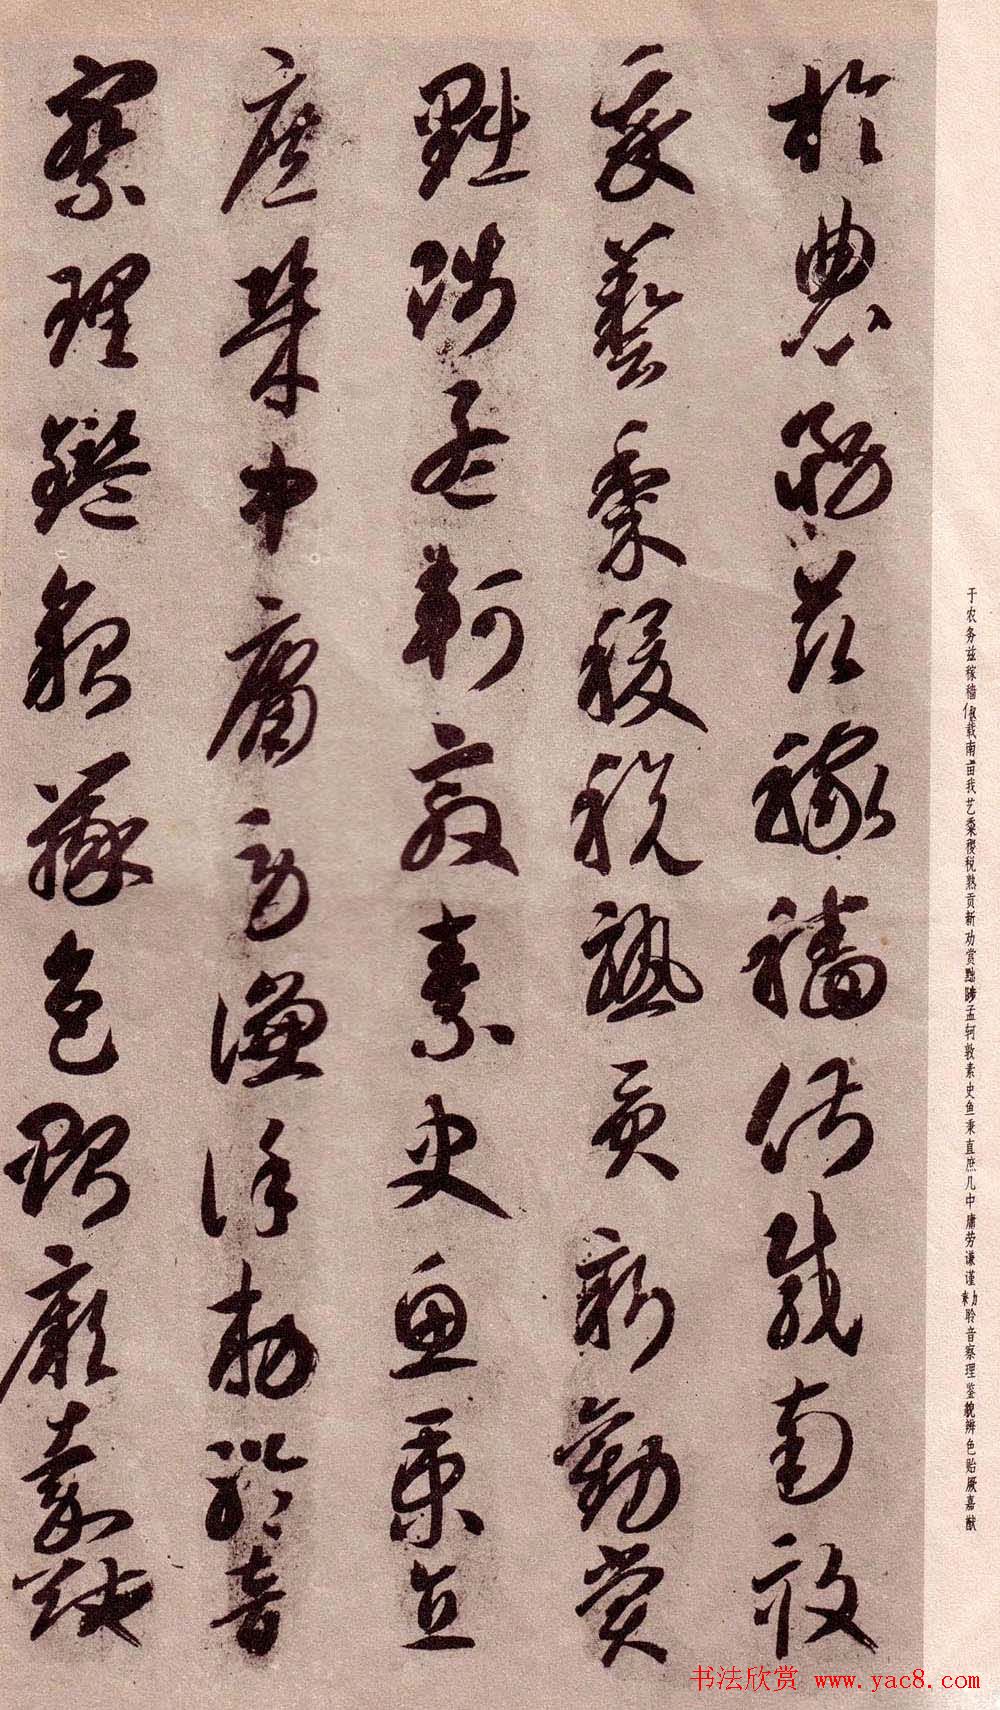 於農務茲稼穡俶載南畝
我藝黍稷稅熟貢新勸賞
黜陟孟軻敦素史魚秉直
庶幾中庸勞謙謹勑聆音
察理鑑貌辨色貽厥嘉猷
于农务兹稼穑俶载南亩我艺黍稷税熟贡新劝赏黜陟孟轲敦素史鱼秉直庶几中庸劳谦谨勑聆音察理鉴貌辨色贻厥嘉猷
书法欣赏 www.yac8.com